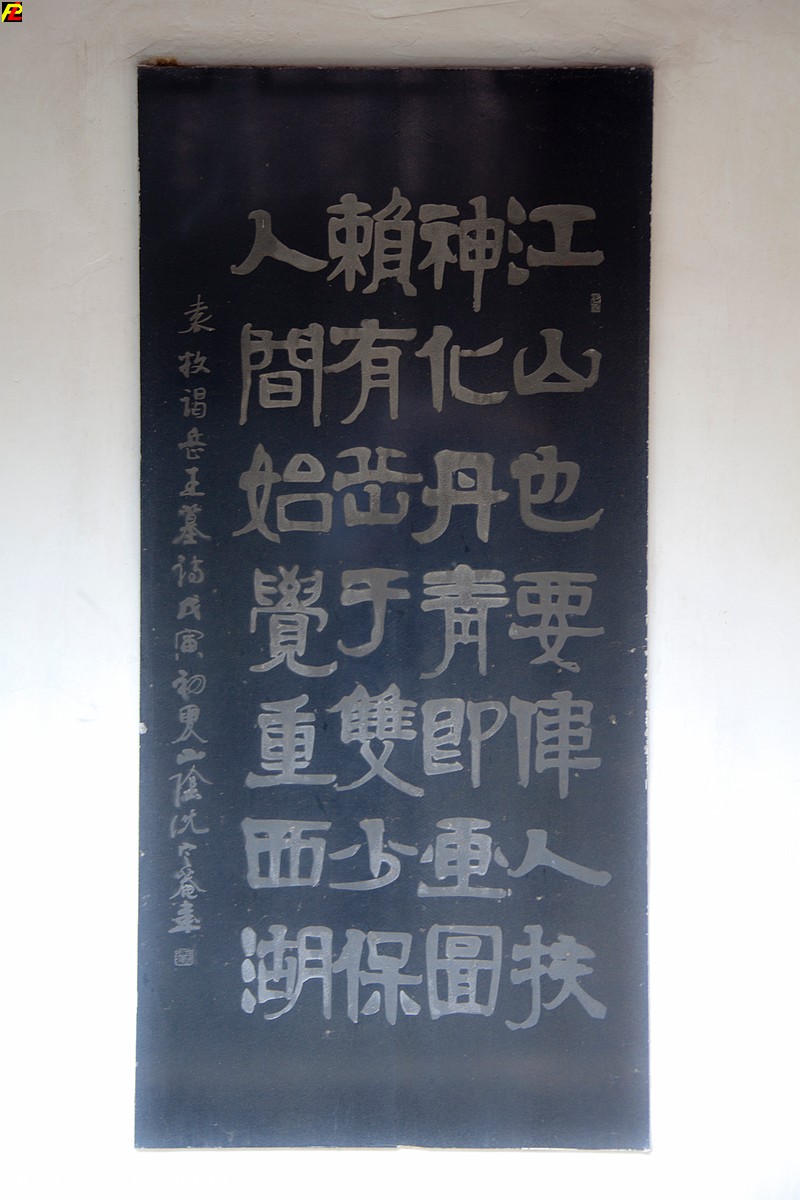 江山也要偉人扶
神化丹青即畫圖
賴有岳于雙少保
人間始覺重西湖
袁枚謁岳王墓詩戊寅初夏山陰沈定菴書